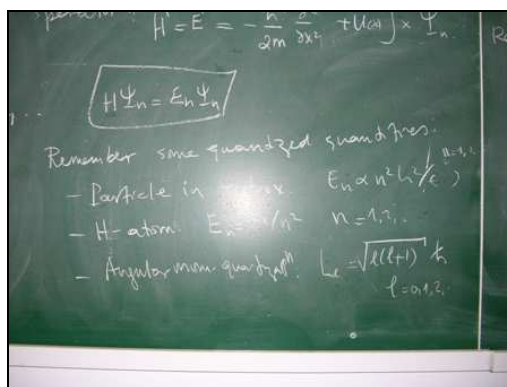 H = E = - ħ/2m ∂²/∂x² + U(x)] × Ψn.
HΨn = EnΨn
Remember some quantized quantities:
- Particle in box. En ∝ n²h²/ n=1,2
- H-atom. En = /n² n = 1,2,
- Angular mom. L = √l(l+1) ħ
l = 0,1,2,